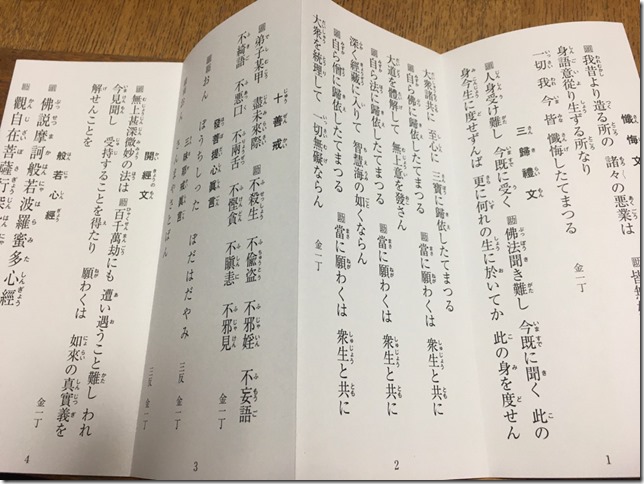 懺悔文
我昔より造る所の 諸々の悪業は 皆
身語意從り生ずる所なり
一切 我 今 皆 懺悔したてまつる 金一丁
三歸禮文
人身受け難し 今既に受く 佛法聞き難し 今既に聞く 此の
身今生に度せずんば 更に何れの生に於いてか 此の身を度せん
1
大衆諸共に 至心に 三寳に歸依したてまつる
自ら佛に歸依したてまつる 當に願わくは 衆生と共に
大道を體解して 無上意を發さん
自ら法に歸依したてまつる 當に願わくは 衆生と共に
深く經藏に入りて 智慧海の如くならん
自ら僧に歸依したてまつる 當に願わくは 衆生と共に
大衆を統理して 一切無礙ならん 金一丁
2
十善戒
弟子某甲 盡未來際 不殺生 不偸盗 不邪婬 不妄語
不綺語 不悪口 不兩舌 不慳貪 不瞋恚 不邪見
三反 金一丁
發菩提心眞言
おん ぼうちしった ぼだはだやみ 三反
三昧耶戒眞言
おん さんまやさとばん 三反 金一丁
3
開經文
無上甚深微妙の法は 百千萬劫にも 遭い遇うこと難し われ
今見聞し 受持することを得たり 願わくは 如來の真實義を
解せんことを 金一丁
般若心經
佛説摩訶般若波羅蜜多心經
觀自在菩薩行
4